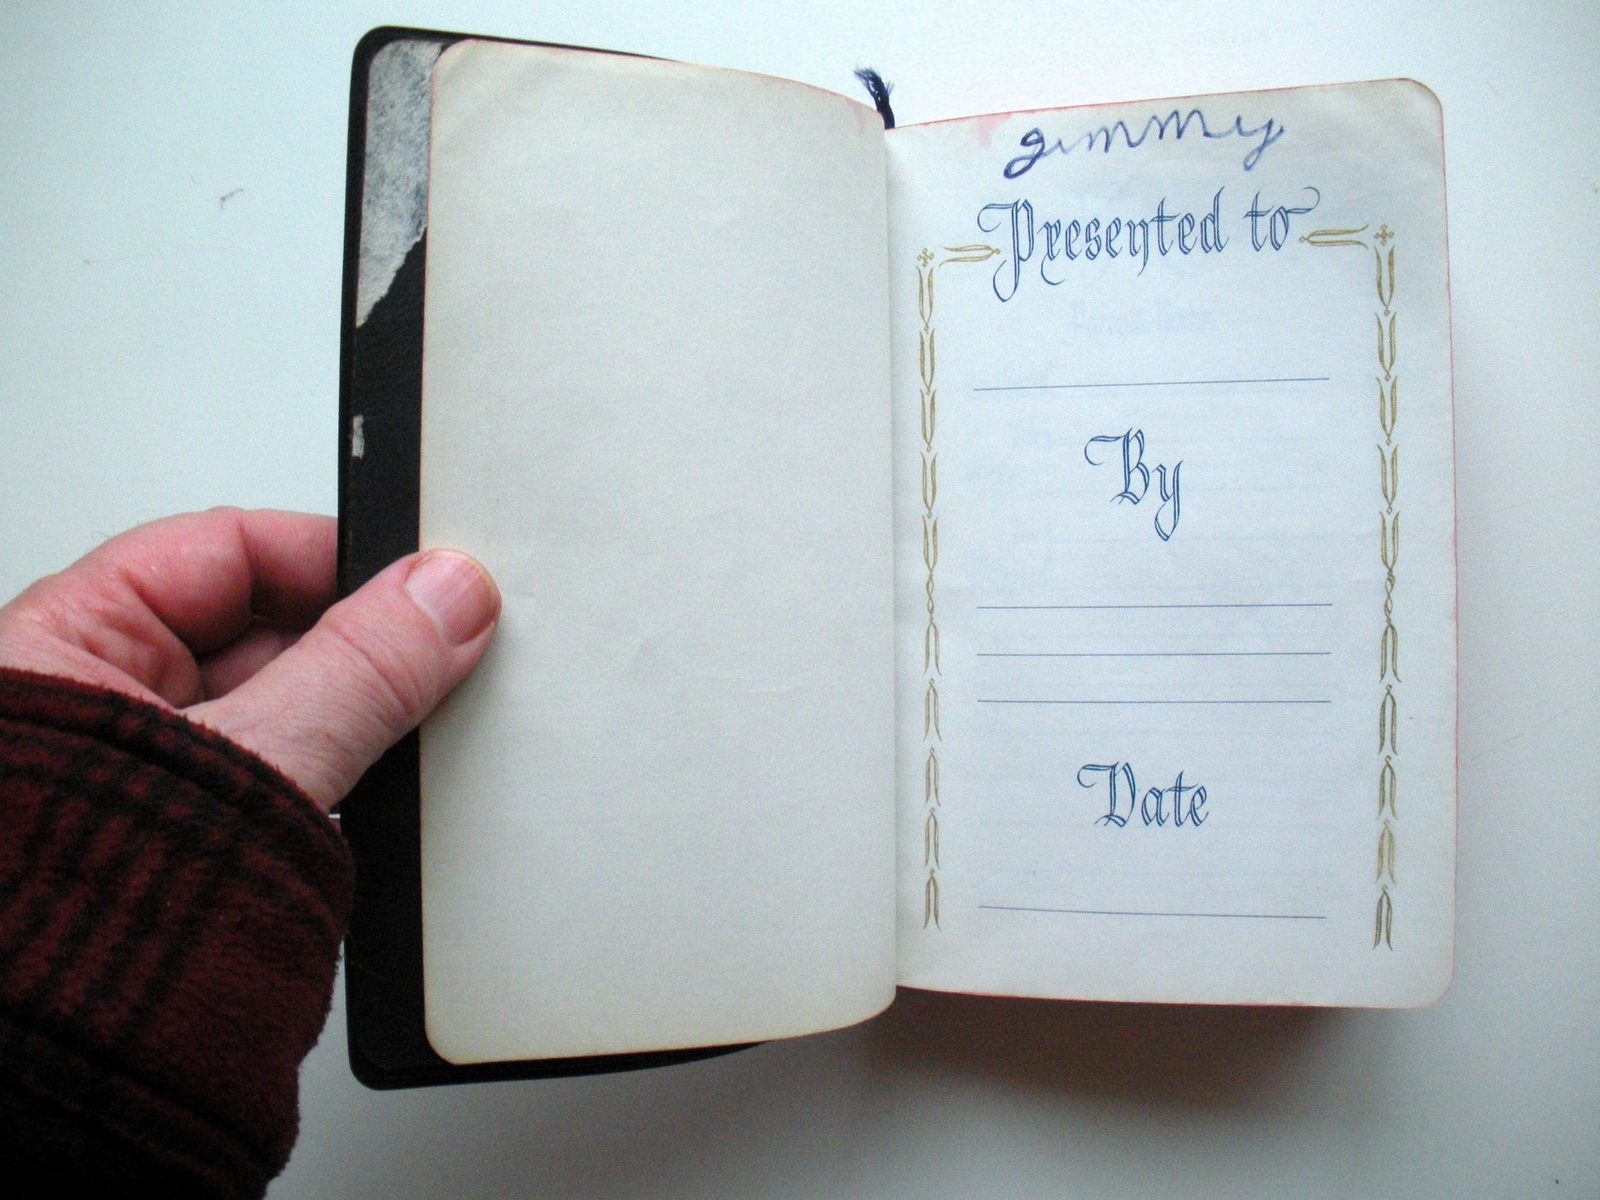 gimmy
Presented to
By
Date